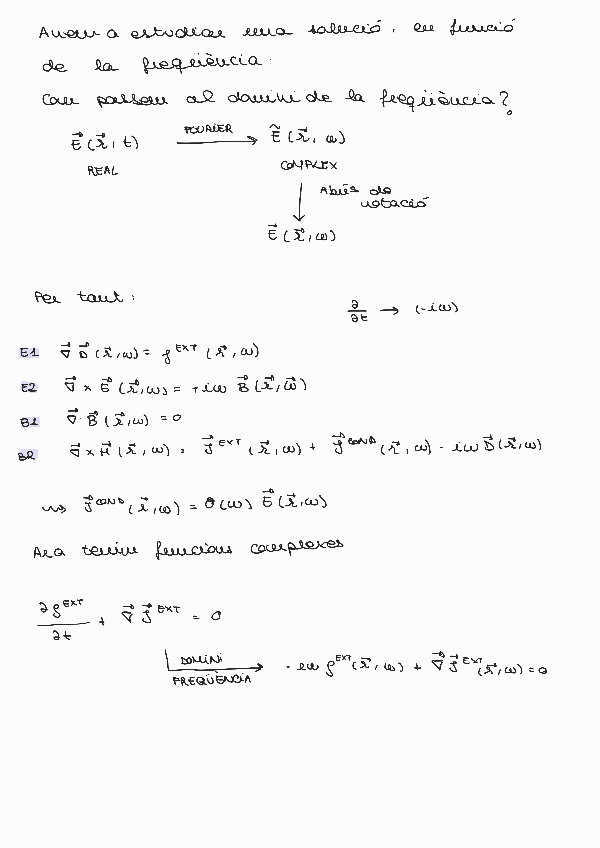 Anem a estudiar una solució, en funció
de la freqüència:
Com passem al domini de la freqüència?
E⃗(r⃗,t) —FOURIER→ Ẽ(r⃗,ω)
REAL COMPLEX
↓ Abús de
notació
E⃗(r⃗,ω)
Per tant: ∂/∂t → (-iω)
E1 ∇⃗ D⃗(r⃗,ω) = ρ^EXT(r⃗,ω)
E2 ∇⃗ × E⃗(r⃗,ω) = +iω B⃗(r⃗,ω)
B1 ∇⃗·B⃗(r⃗,ω) = 0
B2 ∇⃗ × H⃗(r⃗,ω) = J⃗^EXT(r⃗,ω) + J⃗^COND(r⃗,ω) - iω D⃗(r⃗,ω)
⇝ J⃗^COND(r⃗,ω) = σ(ω) E⃗(r⃗,ω)
Ara tenim funcions complexes
∂ρ^EXT/∂t + ∇⃗ J⃗^EXT = 0
DOMINI
FREQÜÈNCIA → -iω ρ^EXT(r⃗,ω) + ∇⃗ J⃗^EXT(r⃗,ω) = 0